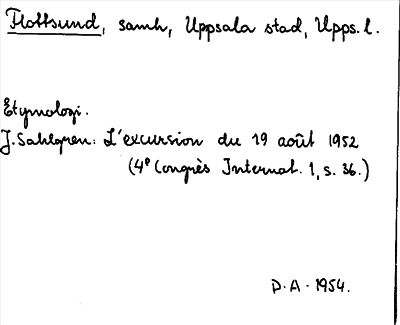 Flottsund, samh, Uppsala stad, Upps. l.
Etymologi.
J. Sahlgren: L'excursion du 19 août 1952
(4e Congrès Internat. 1, s. 36.)
D.A. 1954.